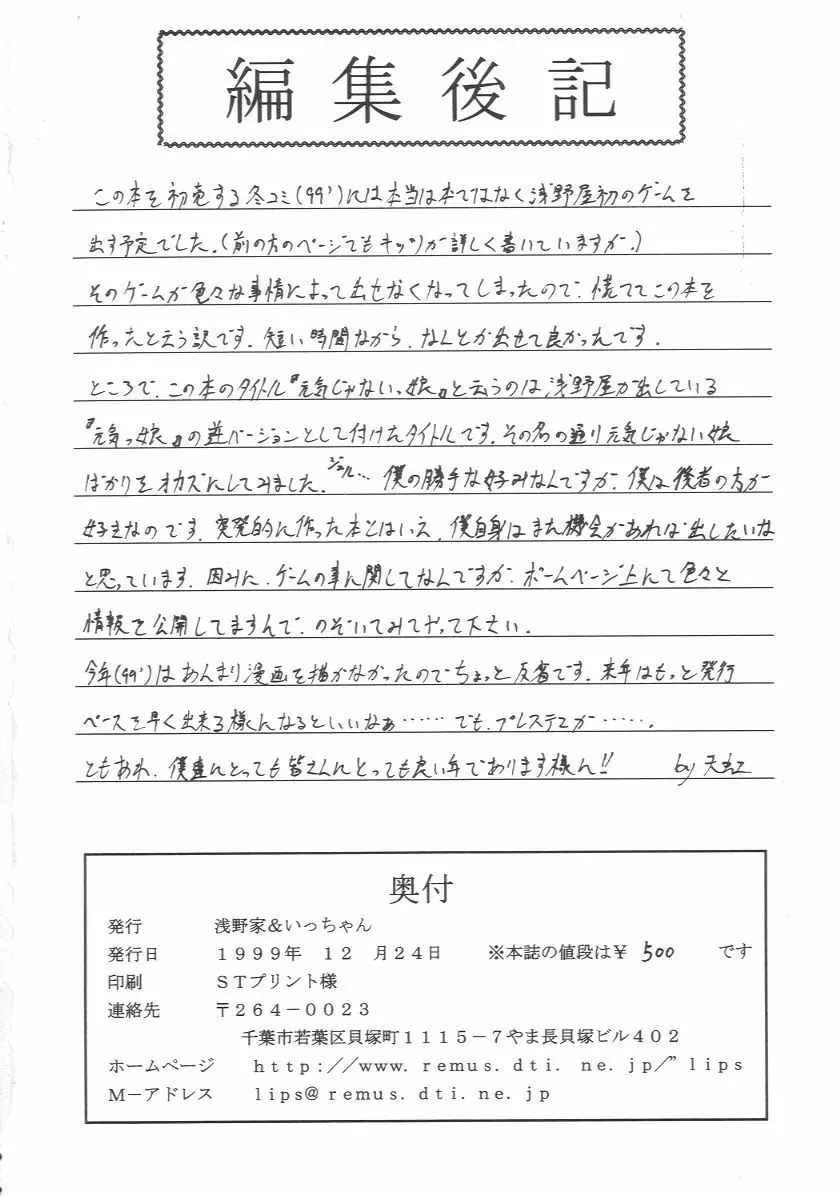 編集後記
この本を初売する冬コミ(99')には本当は本ではなく浅野屋初のゲームを
出す予定でした.(前の方のページでもキップが詳しく書いていますが.)
そのゲームが色々な事情によって出せなくなってしまったので、慌ててこの本を
作ったと云う訳です.短い時間ながら、なんとか出せて良かったです.
ところで、この本のタイトル『元気じゃないっ娘』と云うのは浅野屋が出している
『元気っ娘』の逆バージョンとして付けたタイトルです.その名の通り元気じゃない娘
ばかりをオカズにしてみました.ジュル… 僕の勝手な好みなんですが、僕は後者の方が
好きなのです.突発的に作った本とはいえ、僕自身はまた機会があれば出したいな
と思っています.因みに、ゲームの事に関してなんですが、ホームページ上にて色々と
情報を公開してますんで、のぞいてみてやって下さい.
今年(99')はあんまり漫画を描かなかったのでちょっと反省です.来年はもっと発行
ペースを早く出来る様になるといいなぁ……でも、プレステ2が…….
ともあれ、僕達にとっても皆さんにとっても良い年であります様に!! by 天虹
奥付
発行 浅野家&いっちゃん
発行日 1999年 12月24日 ※本誌の値段は¥ 500 です
印刷 STプリント様
連絡先 〒264-0023
千葉市若葉区貝塚町1115-7やま長貝塚ビル402
ホームページ http://www.remus.dti.ne.jp/”lips
M-アドレス lips@remus.dti.ne.jp